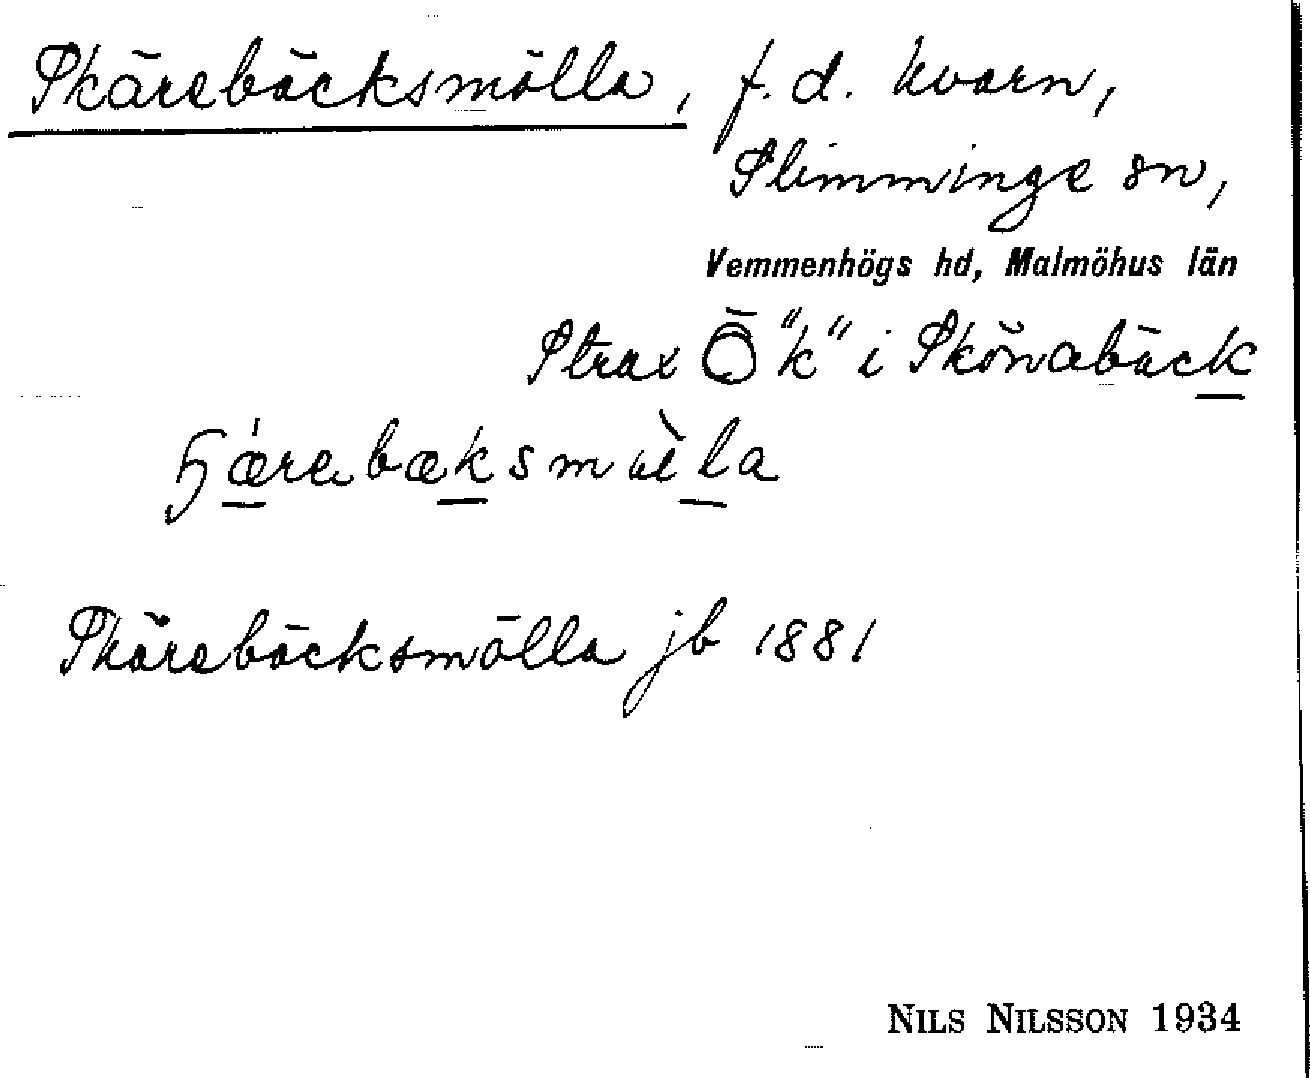 Skärebäcksmölla, f.d. kvarn,
Slimminge sn,
Vemmenhögs hd, Malmöhus län
Strax Ö "k" i Skönabäck
Skärebäcksmölla jb 1881
NILS NILSSON 1934